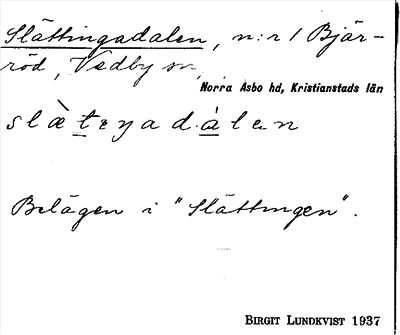 Slättingadalen, n:r 1 Bjär-
röd, Vedby sn,
Norra Åsbo hd, Kristianstads län
Belägen i "Slättingen".
BIRGIT LUNDKVIST 1937